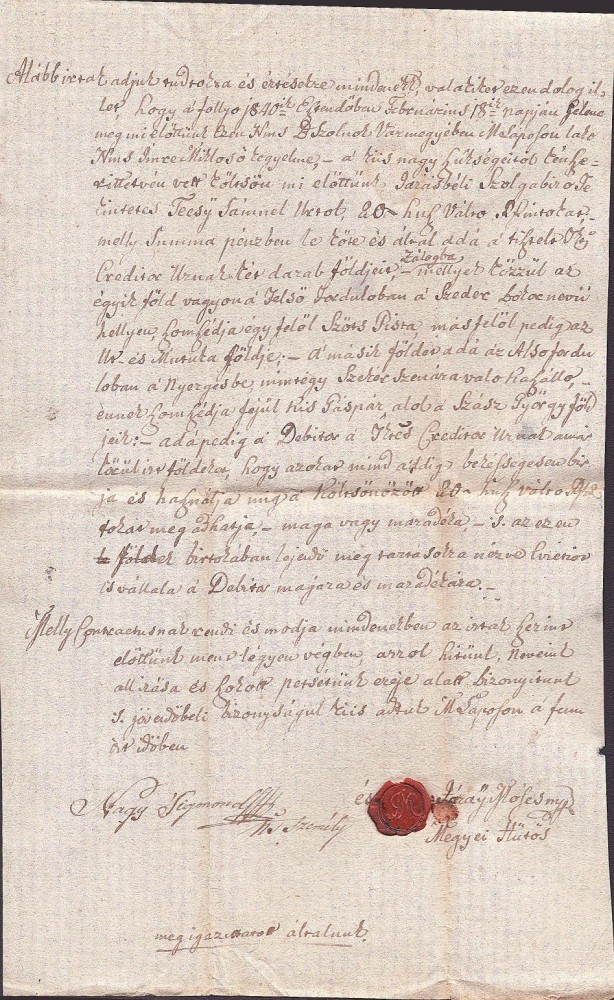 Alább irtak adjuk tudtokra és értésekre mindeneknek, valakiket ezen dolog il-
let, hogy á follyo 1840ik Esztendőben Februarius 18ik napján Jelene
meg mi előttünk Nms B Szolnok Vármegyében M Láposon lako
Nms Imre Miklosó kegyelme, – á kiis nagy szükségeitöl kénsze-
rittetvén vett költsön mi előttünk Járásbéli Szolgabiró Te-
kintetes Técsÿ Sámuel Urtol, 20 – husz Válto Rfrintokat
melly Summa pénzben le köte és által adá á tisztelt
Creditor Urnak két darab földjeit, zálogba – mellyek közzül az
égyik föld vagyon á Felsö fordulóban á Szeder bokor nevü
hellyen, szomszédja égy felöl Szöts Pista, másfelöl pedig az
Ur- és Mutuka földje: – á másik földet adá áz Alsofordu
loban á Nyergesbe, mintégy Szeker szénára valo kaszálló,
ennek szomszédja fejül Kis Gáspár, alol á Szász György föld
jeik: – adá pedig á Debitor á Creditor Urnak á már
közül irt földeket, hogy azokat mind addig békességesen bir
ja és használja mig á költsönözött 20 – husz válto Rfo
tokat meg adhatja, – maga vagy maradéka, – s. az ezen
földek birtokában lejendö meg tartásokra nézve Evictiot
is vállala á Debitor magára és maradékára. –
Melly Contractusnak rendi és modja mindenekben az irtak szerint
előttünk ment légyen végben, arrol hitünk, Nevünk
alá irása és szokott petsétünk ereje alatt bizonyitunk
s. jövendőbéli bizonyságul kiis adtuk M Láposon á fenn
irt időben
Nagy Sigmond és Józsÿ Móses mp
Ts. Személy Megyei Hütös
meg igazittatott általunk